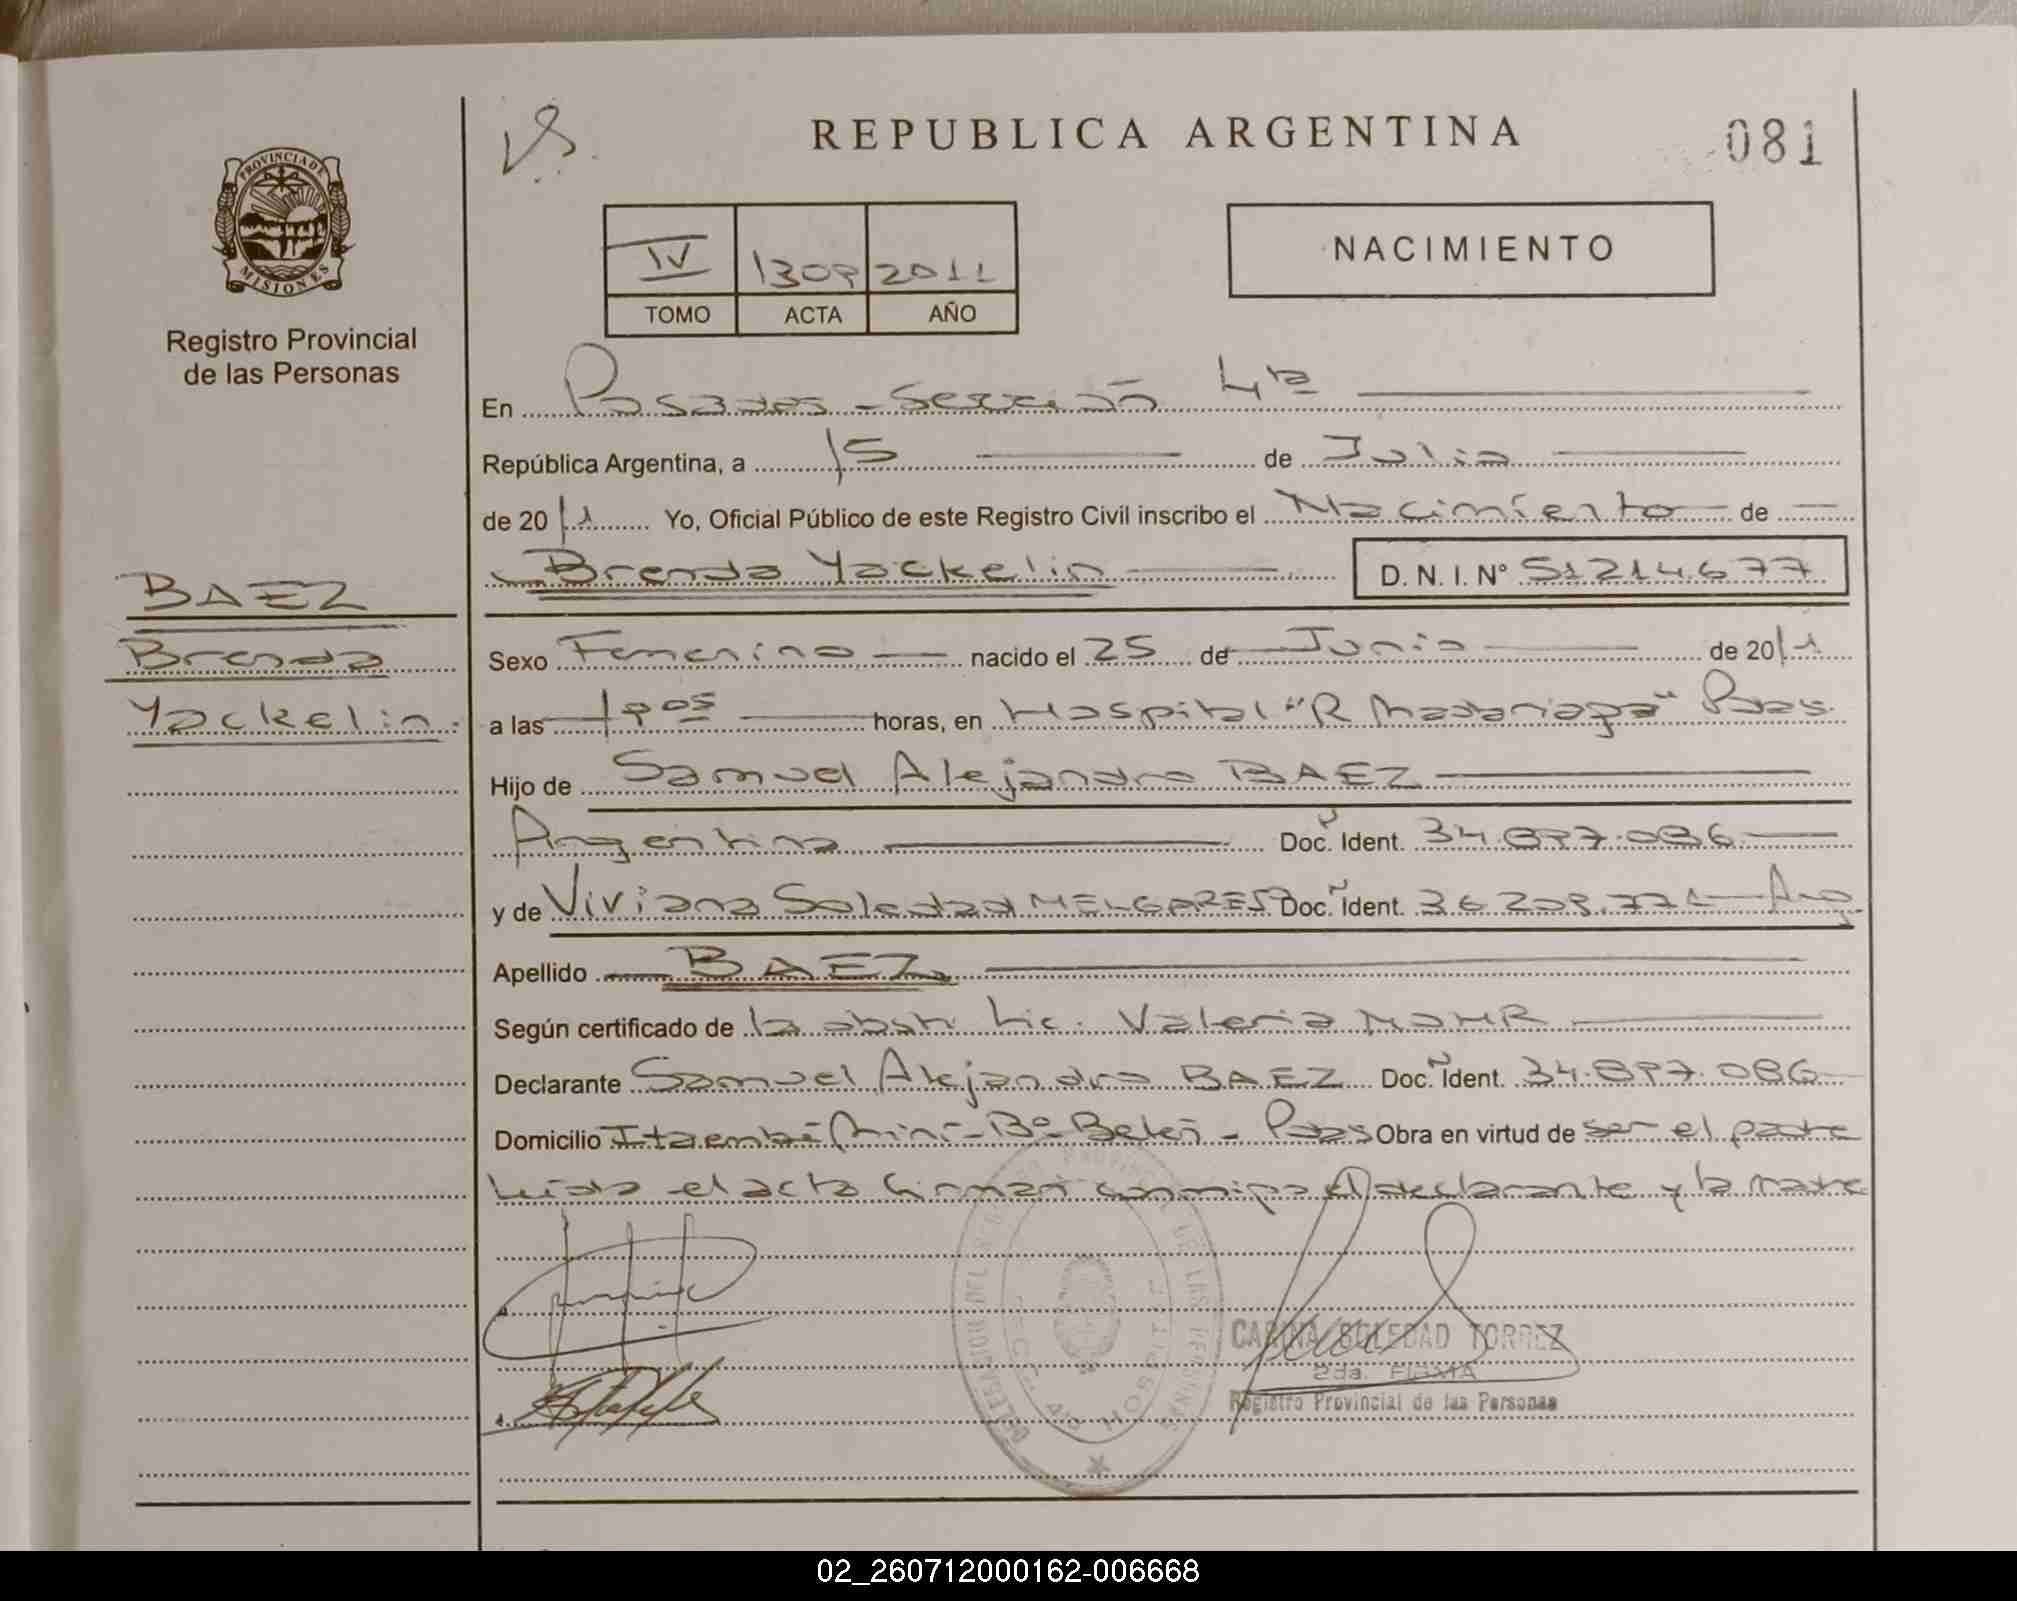 REPUBLICA ARGENTINA
081
PROVINCIA DE
MISIONES
Registro Provincial
de las Personas
IV 1309 2011
TOMO ACTA AÑO
NACIMIENTO
En Posadas - Sección 4ta
República Argentina, a 15 de Julio
de 2011 Yo, Oficial Público de este Registro Civil inscribo el Nacimiento de
Brenda Yackelin D. N. I. Nº 51214677
BAEZ
Brenda
Yackelin.
Sexo Femenino nacido el 25 de Junio de 2011
a las horas, en Hospital "R Madariaga" Pdas.
Hijo de Samuel Alejandro BAEZ
Argentino Doc. Ident. 34.897.086
y de Viviana Soledad MELGAREJO Doc. Ident. 36.209.771 Arg
Apellido BAEZ
Según certificado de la obst. Lic. Valeria MOHR
Declarante Samuel Alejandro BAEZ Doc. Ident. 34.897.086
Domicilio Itaembé Miní - Bº Belén - Pdas Obra en virtud de ser el padre
Leída el acta firman conmigo el declarante y la madre
CARINA SOLEDAD TORREZ
2da. FIRMA
Registro Provincial de las Personas
02_260712000162-006668